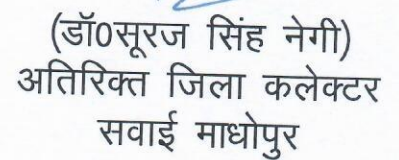 (डॉ0सूरज सिंह नेगी)
अतिरिक्त जिला कलेक्टर
सवाई माधोपुर